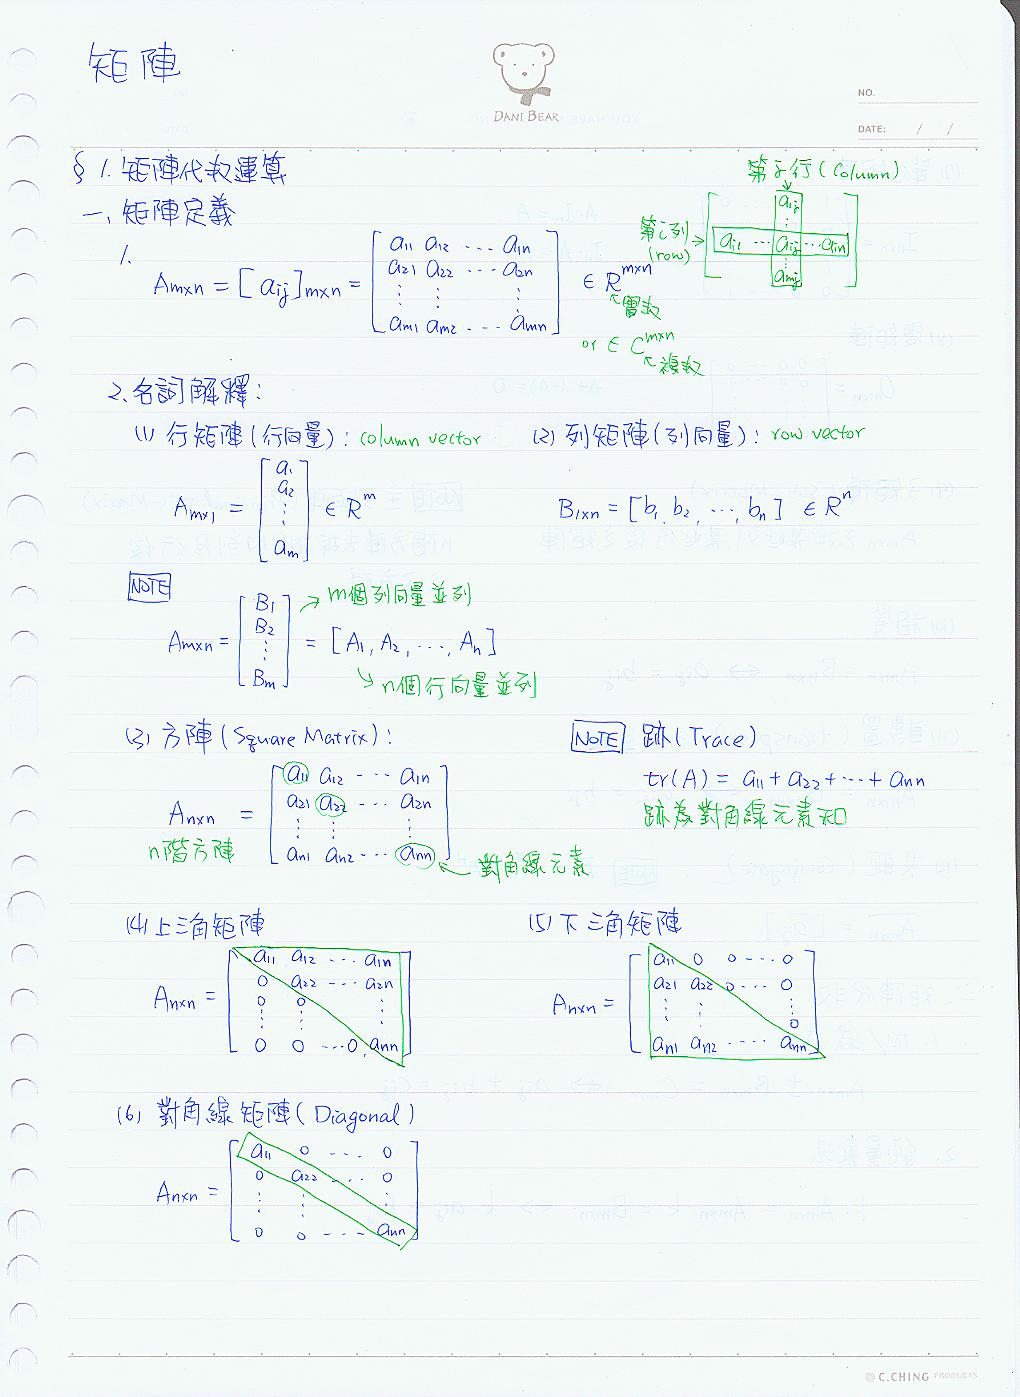 矩陣
DANI BEAR
NO.
DATE: / /
§ 1. 矩陣代数運算
一、矩陣定義
1.
Amxn = [aij]mxn = [a11 a12 ... a1n
a21 a22 ... a2n
⋮ ⋮ ⋮
am1 am2 ... amn] ∈ R^mxn
實数
or ∈ C^mxn
複数
第j行(Column)
第i列(row)
a1j
⋮
ai1 ... aij ... ain
⋮
amj
2. 名詞解釋:
(1) 行矩陣(行向量): column vector
Amx1 = [a1
a2
⋮
am] ∈ R^m
(2) 列矩陣(列向量): row vector
B1xn = [b1, b2, ..., bn] ∈ R^n
NOTE
Amxn = [B1
B2
⋮
Bm] = [A1, A2, ..., An]
m個列向量並列
n個行向量並列
(3) 方陣(Square Matrix):
Anxn = [a11 a12 ... a1n
a21 a22 ... a2n
⋮ ⋮ ⋮
an1 an2 ... ann]
n階方陣
對角線元素
NOTE 跡(Trace)
tr(A) = a11 + a22 + ... + ann
跡為對角線元素和
(4) 上三角矩陣
Anxn = [a11 a12 ... a1n
0 a22 ... a2n
0 0 ⋮
⋮ ⋮ ⋮
0 0 ...0 ann]
(5) 下三角矩陣
Anxn = [a11 0 0 ... 0
a21 a22 0 ... 0
⋮ ⋮ ⋮
0
an1 an2 .... ann]
(6) 對角線矩陣(Diagonal)
Anxn = [a11 0 ... 0
0 a22 ... 0
⋮ ⋮ ⋮
0 0 ... ann]
© C.CHING PRODUCTS